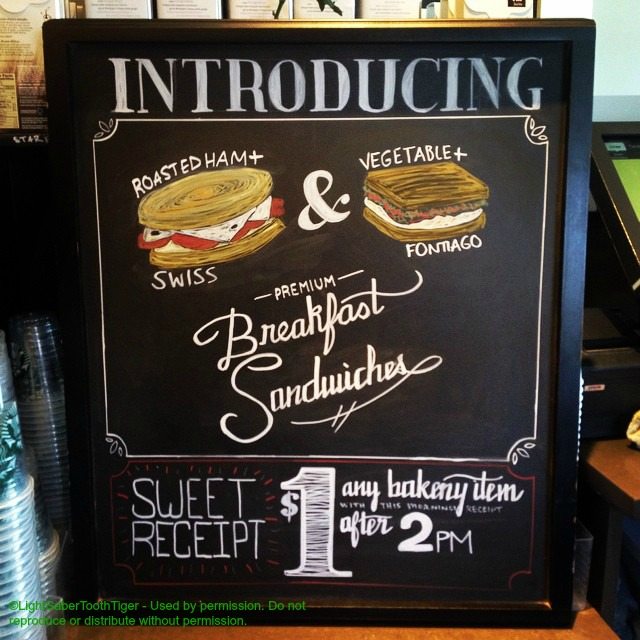 INTRODUCING
ROASTED HAM+
SWISS
&
VEGETABLE+
FONTIAGO
PREMIUM
Breakfast
Sandwiches
SWEET
RECEIPT
$1
any bakery item
WITH THIS MORNINGS RECEIPT
after 2PM
©LightSaberToothTiger - Used by permission. Do not
reproduce or distribute without permission.